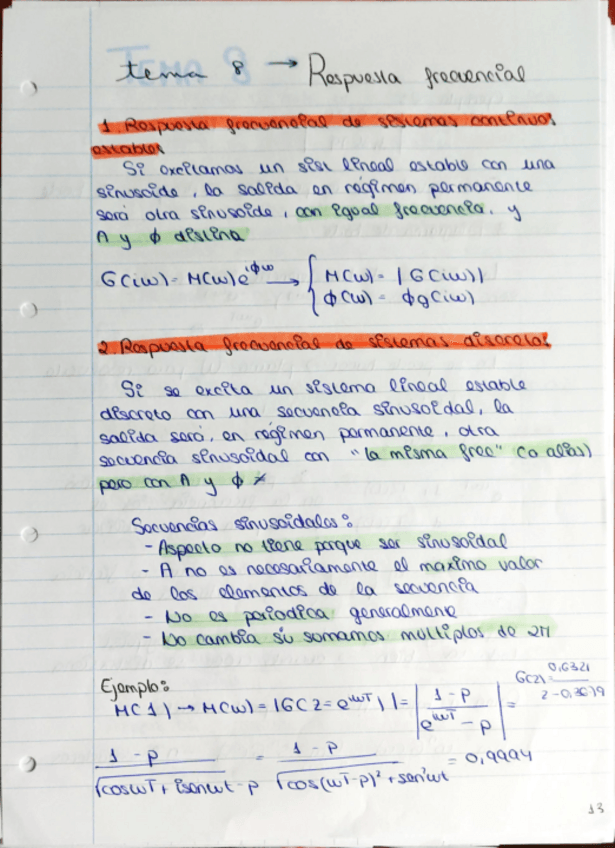 tema 8 → Respuesta frecuencial
1. Respuesta frecuencial de sistemas continuos
estables
Si excitamos un sist lineal estable con una
sinusoide, la salida en régimen permanente
será otra sinusoide, con igual frecuencia, y
A y ϕ distina
G(iω) = M(ω)e^iϕω → { M(ω) = |G(iω)|
ϕ(ω) = ϕg(iω)
2. Respuesta frecuencial de sistemas discretos
Si se excita un sistema lineal estable
discreto con una secuencia sinusoidal, la
salida será, en régimen permanente, otra
secuencia sinusoidal con "la misma frec" (o alias)
pero con A y ϕ ≠
Secuencias sinusoidales:
- Aspecto no tiene porque ser sinusoidal
- A no es necesariamente el maximo valor
de los elementos de la secuencia
- No es periodica generalmente
- No cambia si somamos multiplos de 2π
Ejemplo:
M(1) → M(ω) = |G(z = e^iωT)| = | 1 - p / e^iωT - p | =
G(z) = 0,6321 / z - 0,3679
1 - p / √cosωT + isenωt - p = 1 - p / √cos(ωT-p)² + sen²ωt = 0,9994
13